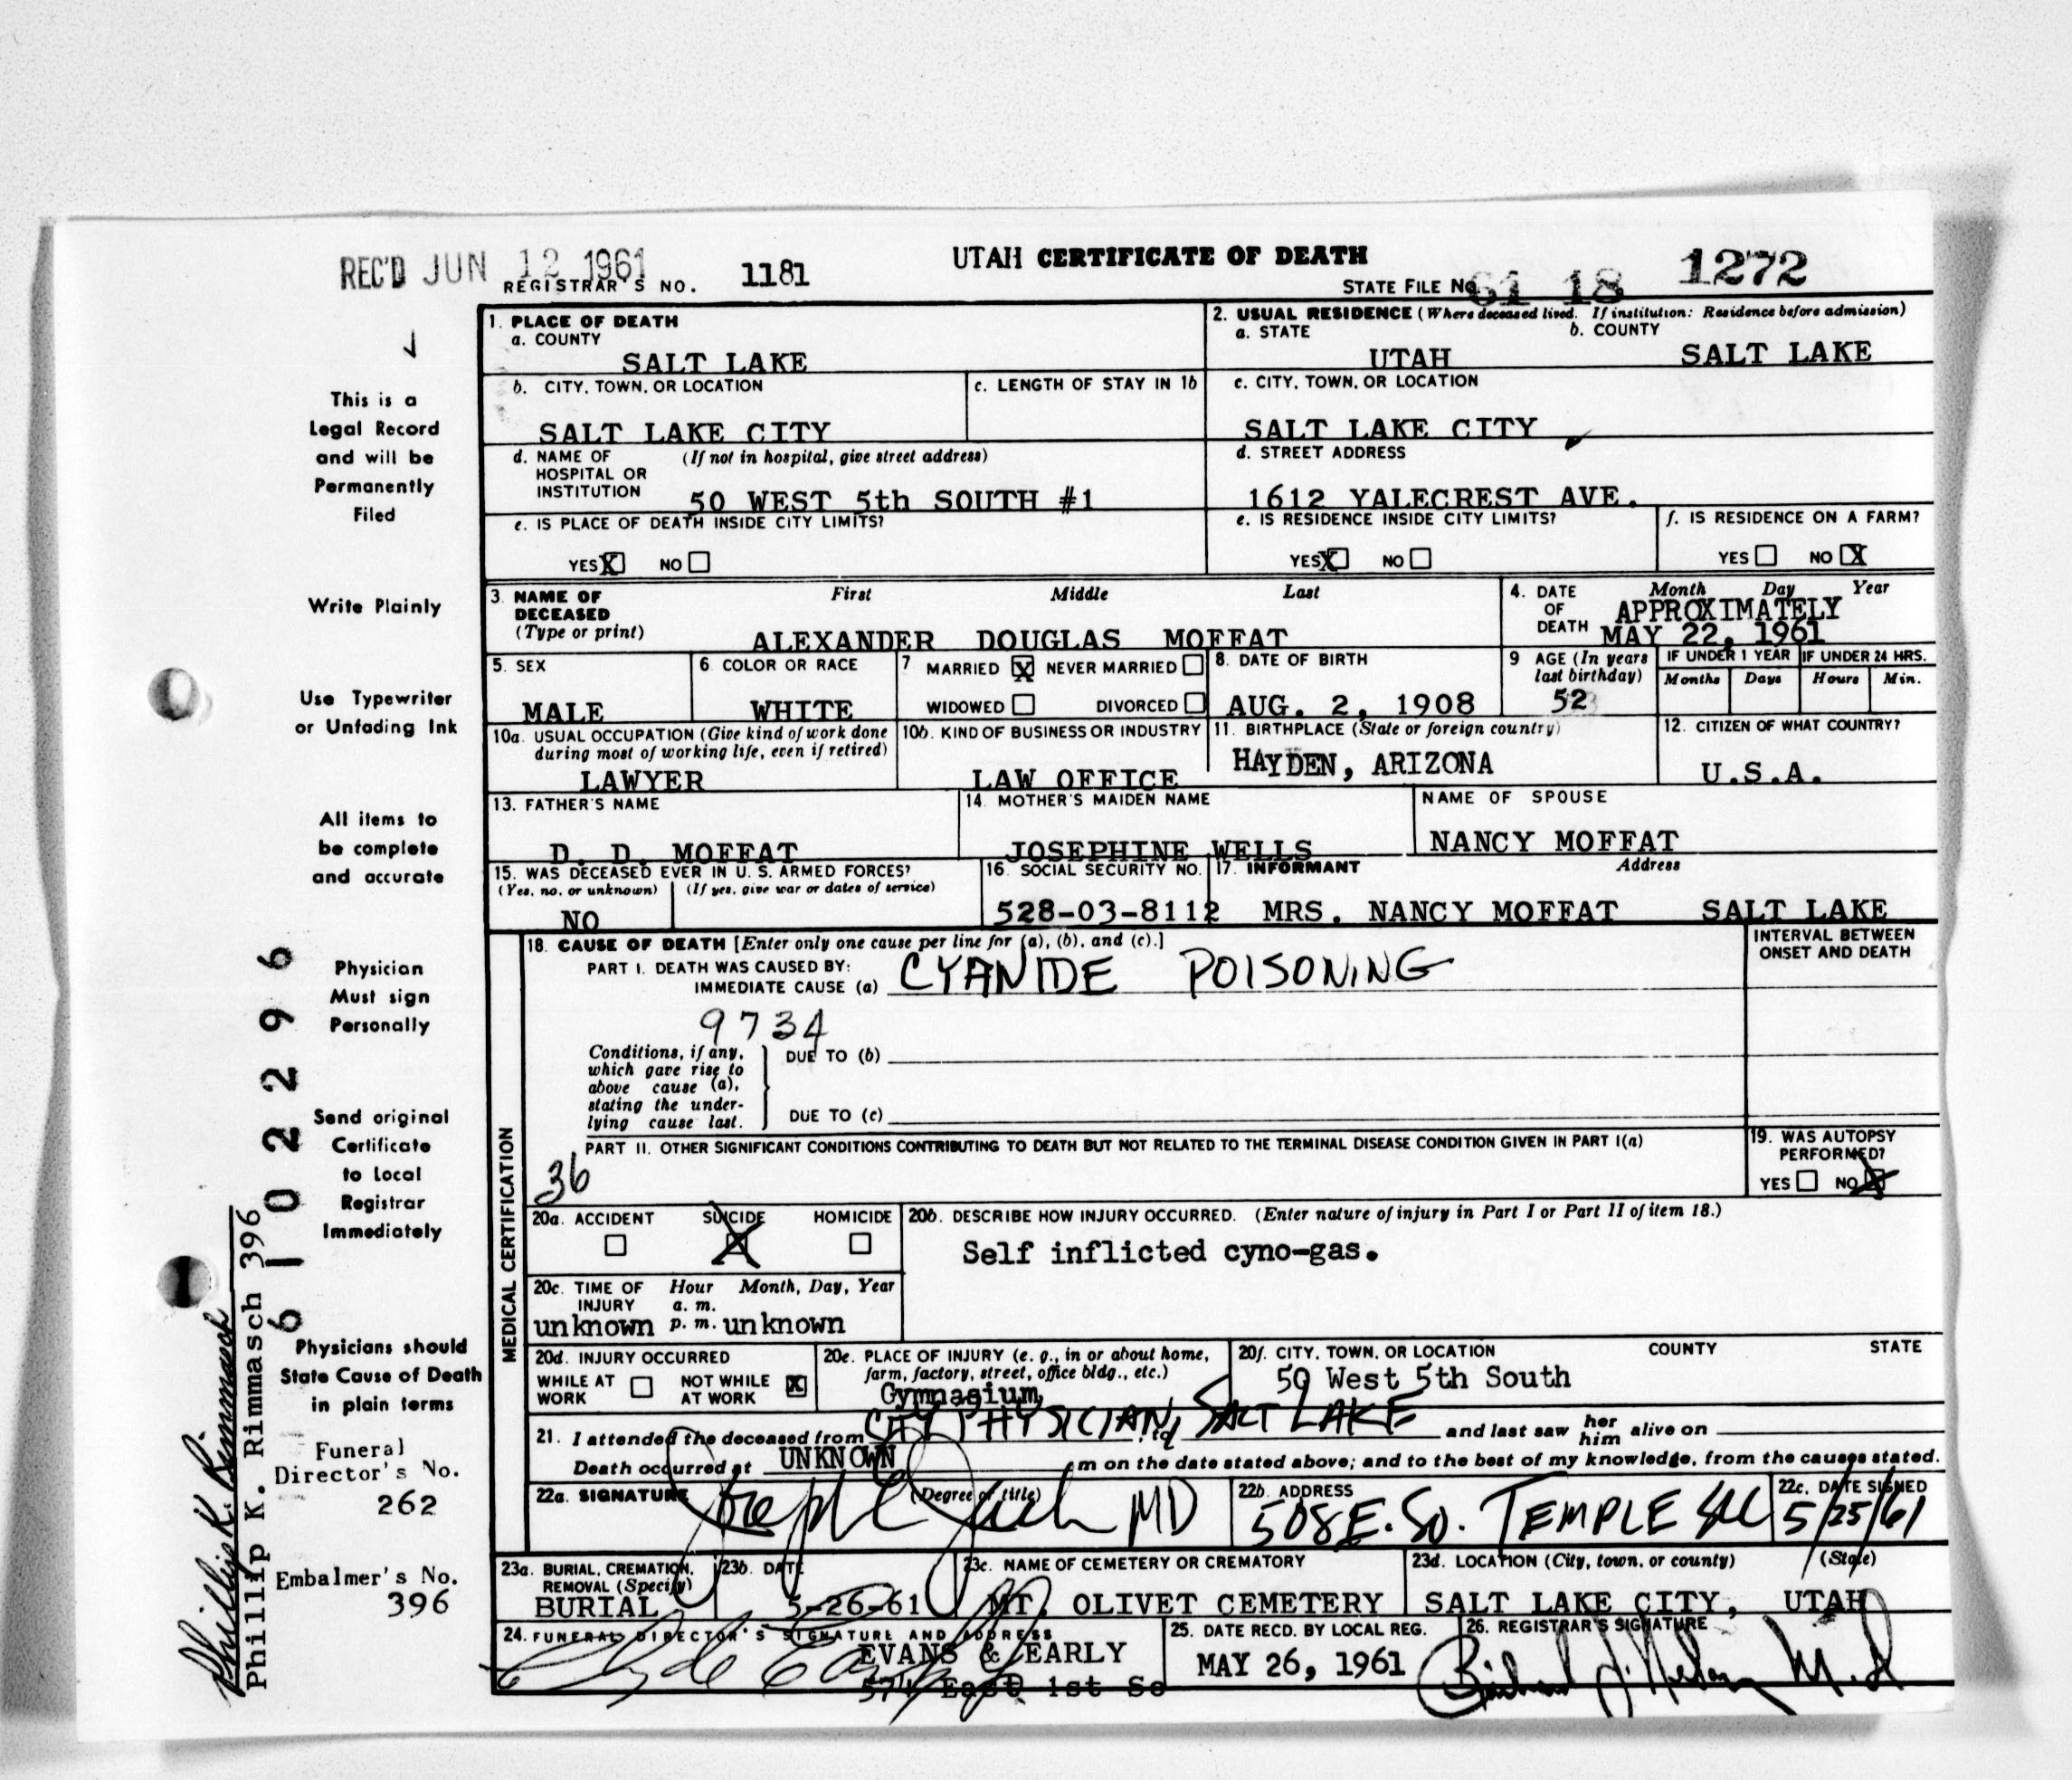 REC'D JUN 12 1961
REGISTRAR'S NO. 1181
UTAH CERTIFICATE OF DEATH
STATE FILE NO. 61 18 1272
This is a
Legal Record
and will be
Permanently
Filed
Write Plainly
Use Typewriter
or Unfading Ink
All items to
be complete
and accurate
Physician
Must sign
Personally
Send original
Certificate
to Local
Registrar
Immediately
Physicians should
State Cause of Death
in plain terms
Funeral
Director's No.
262
Embalmer's No.
396
6 1 0 2 2 9 6
Phillip K. Rimmasch
Phillip K. Rimmasch 396
1. PLACE OF DEATH
a. COUNTY
SALT LAKE
2. USUAL RESIDENCE (Where deceased lived. If institution: Residence before admission)
a. STATE b. COUNTY
UTAH SALT LAKE
b. CITY, TOWN, OR LOCATION
SALT LAKE CITY
c. LENGTH OF STAY IN 1b
c. CITY, TOWN, OR LOCATION
SALT LAKE CITY
d. NAME OF (If not in hospital, give street address)
HOSPITAL OR
INSTITUTION 50 WEST 5th SOUTH #1
d. STREET ADDRESS
1612 YALECREST AVE.
e. IS PLACE OF DEATH INSIDE CITY LIMITS?
YES X NO
e. IS RESIDENCE INSIDE CITY LIMITS?
YES X NO
f. IS RESIDENCE ON A FARM?
YES NO X
3. NAME OF First Middle Last
DECEASED
(Type or print) ALEXANDER DOUGLAS MOFFAT
4. DATE Month Day Year
OF APPROXIMATELY
DEATH MAY 22, 1961
5. SEX
MALE
6 COLOR OR RACE
WHITE
7 MARRIED X NEVER MARRIED
WIDOWED DIVORCED
8. DATE OF BIRTH
AUG. 2, 1908
9 AGE (In years
last birthday)
52
IF UNDER 1 YEAR IF UNDER 24 HRS.
Months Days Hours Min.
10a. USUAL OCCUPATION (Give kind of work done
during most of working life, even if retired)
LAWYER
10b. KIND OF BUSINESS OR INDUSTRY
LAW OFFICE
11. BIRTHPLACE (State or foreign country)
HAYDEN, ARIZONA
12. CITIZEN OF WHAT COUNTRY?
U.S.A.
13. FATHER'S NAME
D. D. MOFFAT
14. MOTHER'S MAIDEN NAME
JOSEPHINE WELLS
NAME OF SPOUSE
NANCY MOFFAT
15. WAS DECEASED EVER IN U. S. ARMED FORCES?
(Yes, no, or unknown) (If yes, give war or dates of service)
NO
16. SOCIAL SECURITY NO.
528-03-8112
17. INFORMANT Address
MRS. NANCY MOFFAT SALT LAKE
MEDICAL CERTIFICATION
18. CAUSE OF DEATH [Enter only one cause per line for (a), (b), and (c).]
PART I. DEATH WAS CAUSED BY:
IMMEDIATE CAUSE (a) CYANIDE POISONING
INTERVAL BETWEEN
ONSET AND DEATH
9734
Conditions, if any,
which gave rise to
above cause (a),
stating the under-
lying cause last.
DUE TO (b)
DUE TO (c)
PART II. OTHER SIGNIFICANT CONDITIONS CONTRIBUTING TO DEATH BUT NOT RELATED TO THE TERMINAL DISEASE CONDITION GIVEN IN PART I(a)
36
19. WAS AUTOPSY
PERFORMED?
YES NO X
20a. ACCIDENT SUICIDE HOMICIDE
X
20b. DESCRIBE HOW INJURY OCCURRED. (Enter nature of injury in Part I or Part II of item 18.)
Self inflicted cyno-gas.
20c. TIME OF Hour Month, Day, Year
INJURY a. m.
unknown p. m. unknown
20d. INJURY OCCURRED
WHILE AT NOT WHILE X
WORK AT WORK
20e. PLACE OF INJURY (e. g., in or about home,
farm, factory, street, office bldg., etc.)
Gymnasium
20f. CITY, TOWN, OR LOCATION COUNTY STATE
50 West 5th South
21. I attended the deceased from CITY PHYSICIAN, to SALT LAKE and last saw her him alive on
Death occurred at UNKNOWN m on the date stated above; and to the best of my knowledge, from the causes stated.
22a. SIGNATURE (Degree or title)
MD
22b. ADDRESS
508 E. SO. TEMPLE SLC
22c. DATE SIGNED
5/25/61
23a. BURIAL, CREMATION,
REMOVAL (Specify)
BURIAL
23b. DATE
5-26-61
23c. NAME OF CEMETERY OR CREMATORY
MT. OLIVET CEMETERY
23d. LOCATION (City, town, or county) (State)
SALT LAKE CITY, UTAH
24. FUNERAL DIRECTOR'S SIGNATURE AND ADDRESS
Clyde Early
EVANS & EARLY
574 East 1st So
25. DATE RECD. BY LOCAL REG.
MAY 26, 1961
26. REGISTRAR'S SIGNATURE
M.D